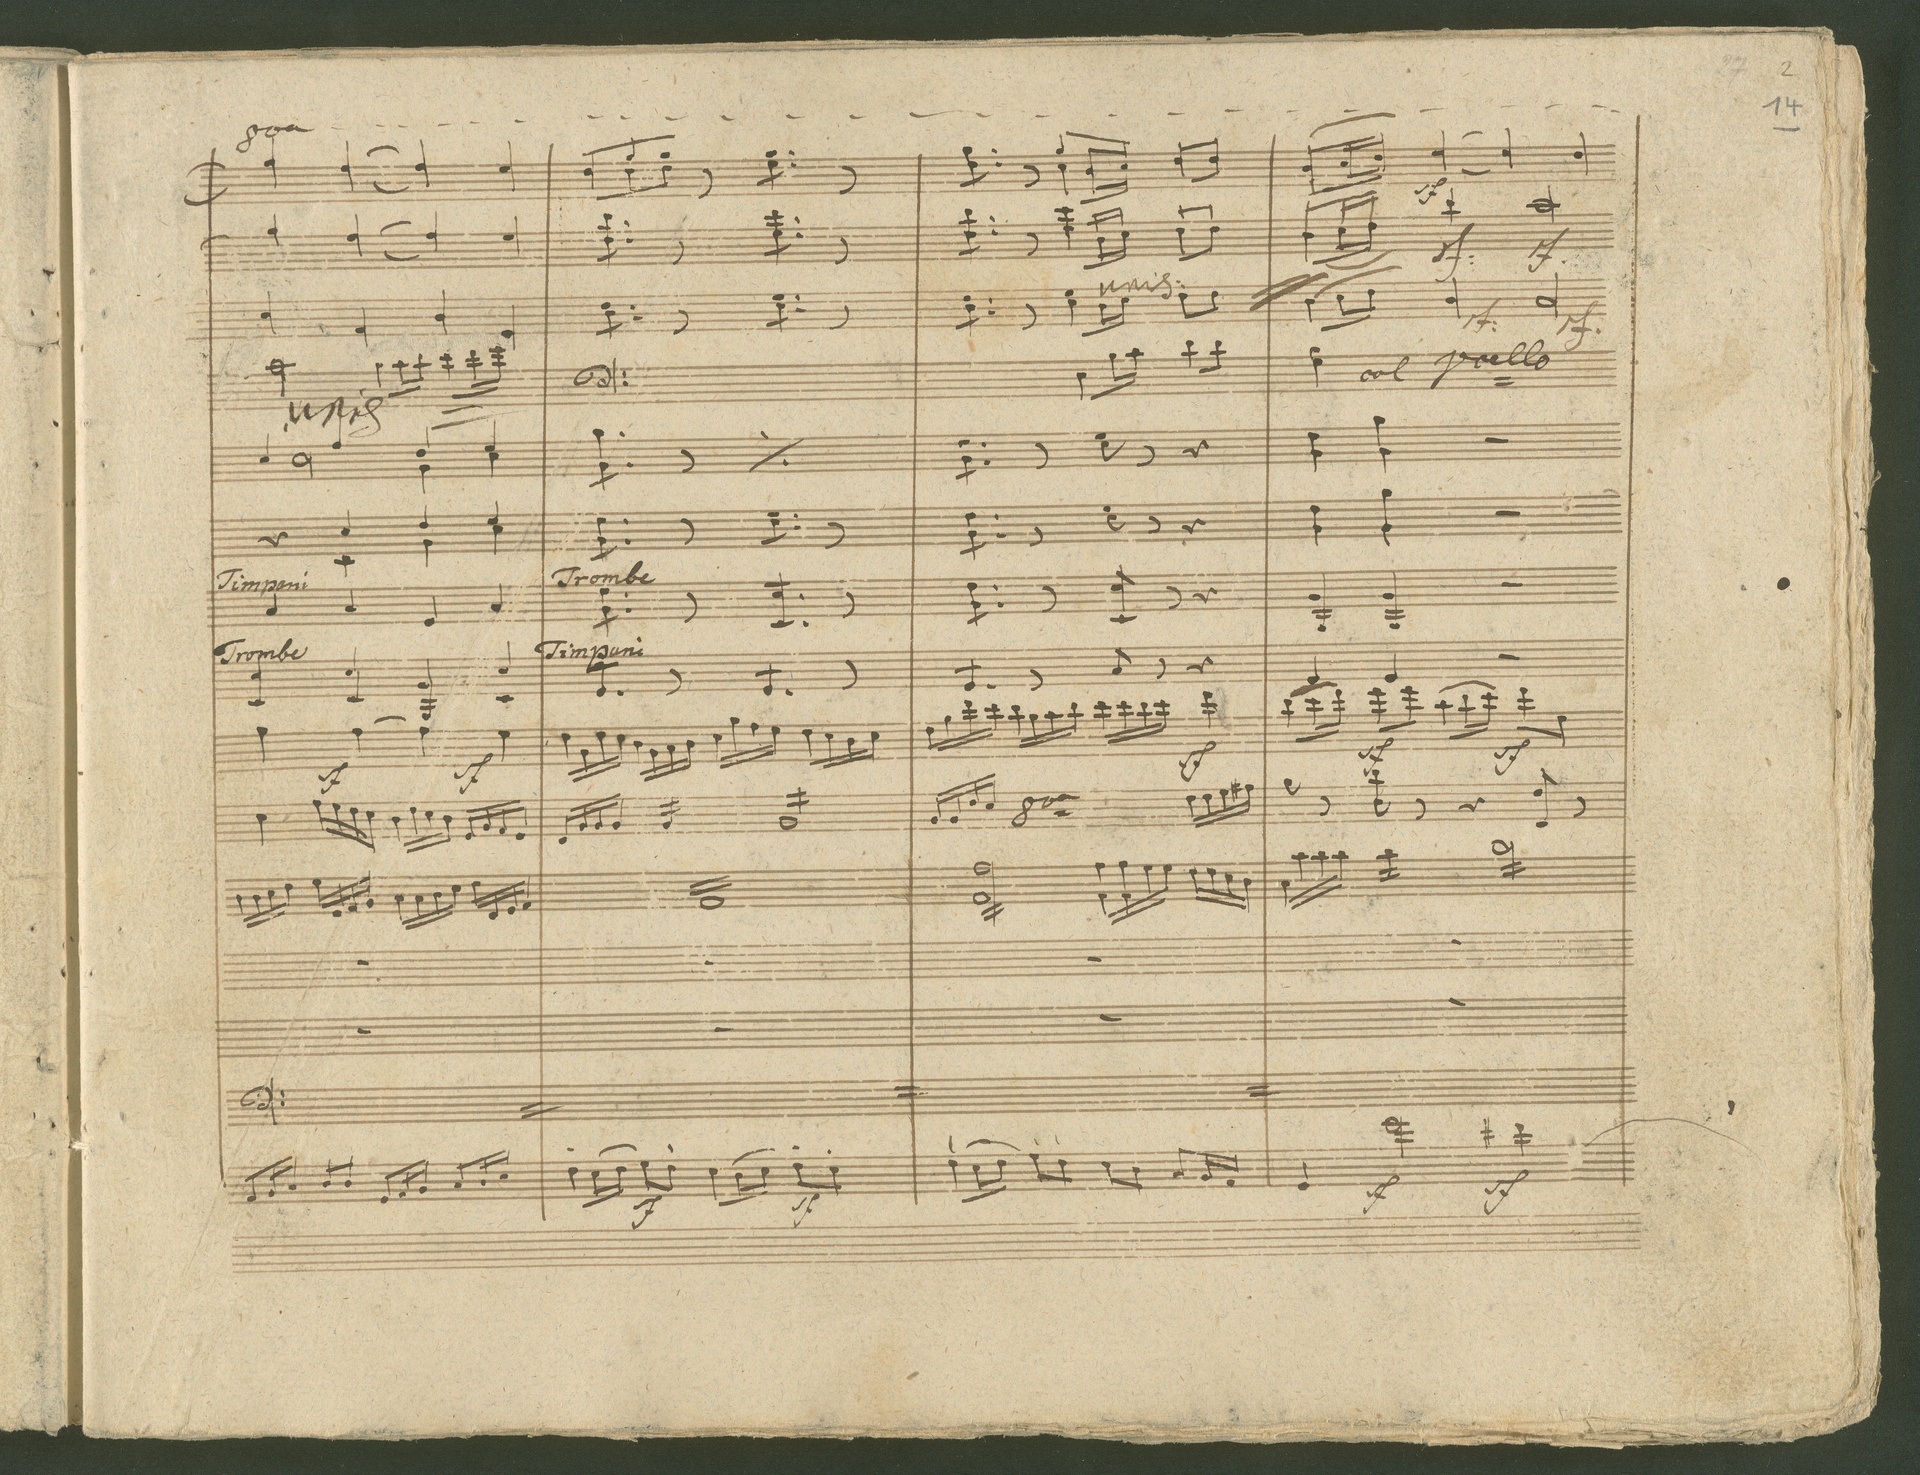 2
14
8va
sf
sf: sf.
unis:
sf: sf.
col Vcello
unis
Timpani Trombe
Trombe Timpani
sf sf sf sf sf
8va
sf sf sf sf